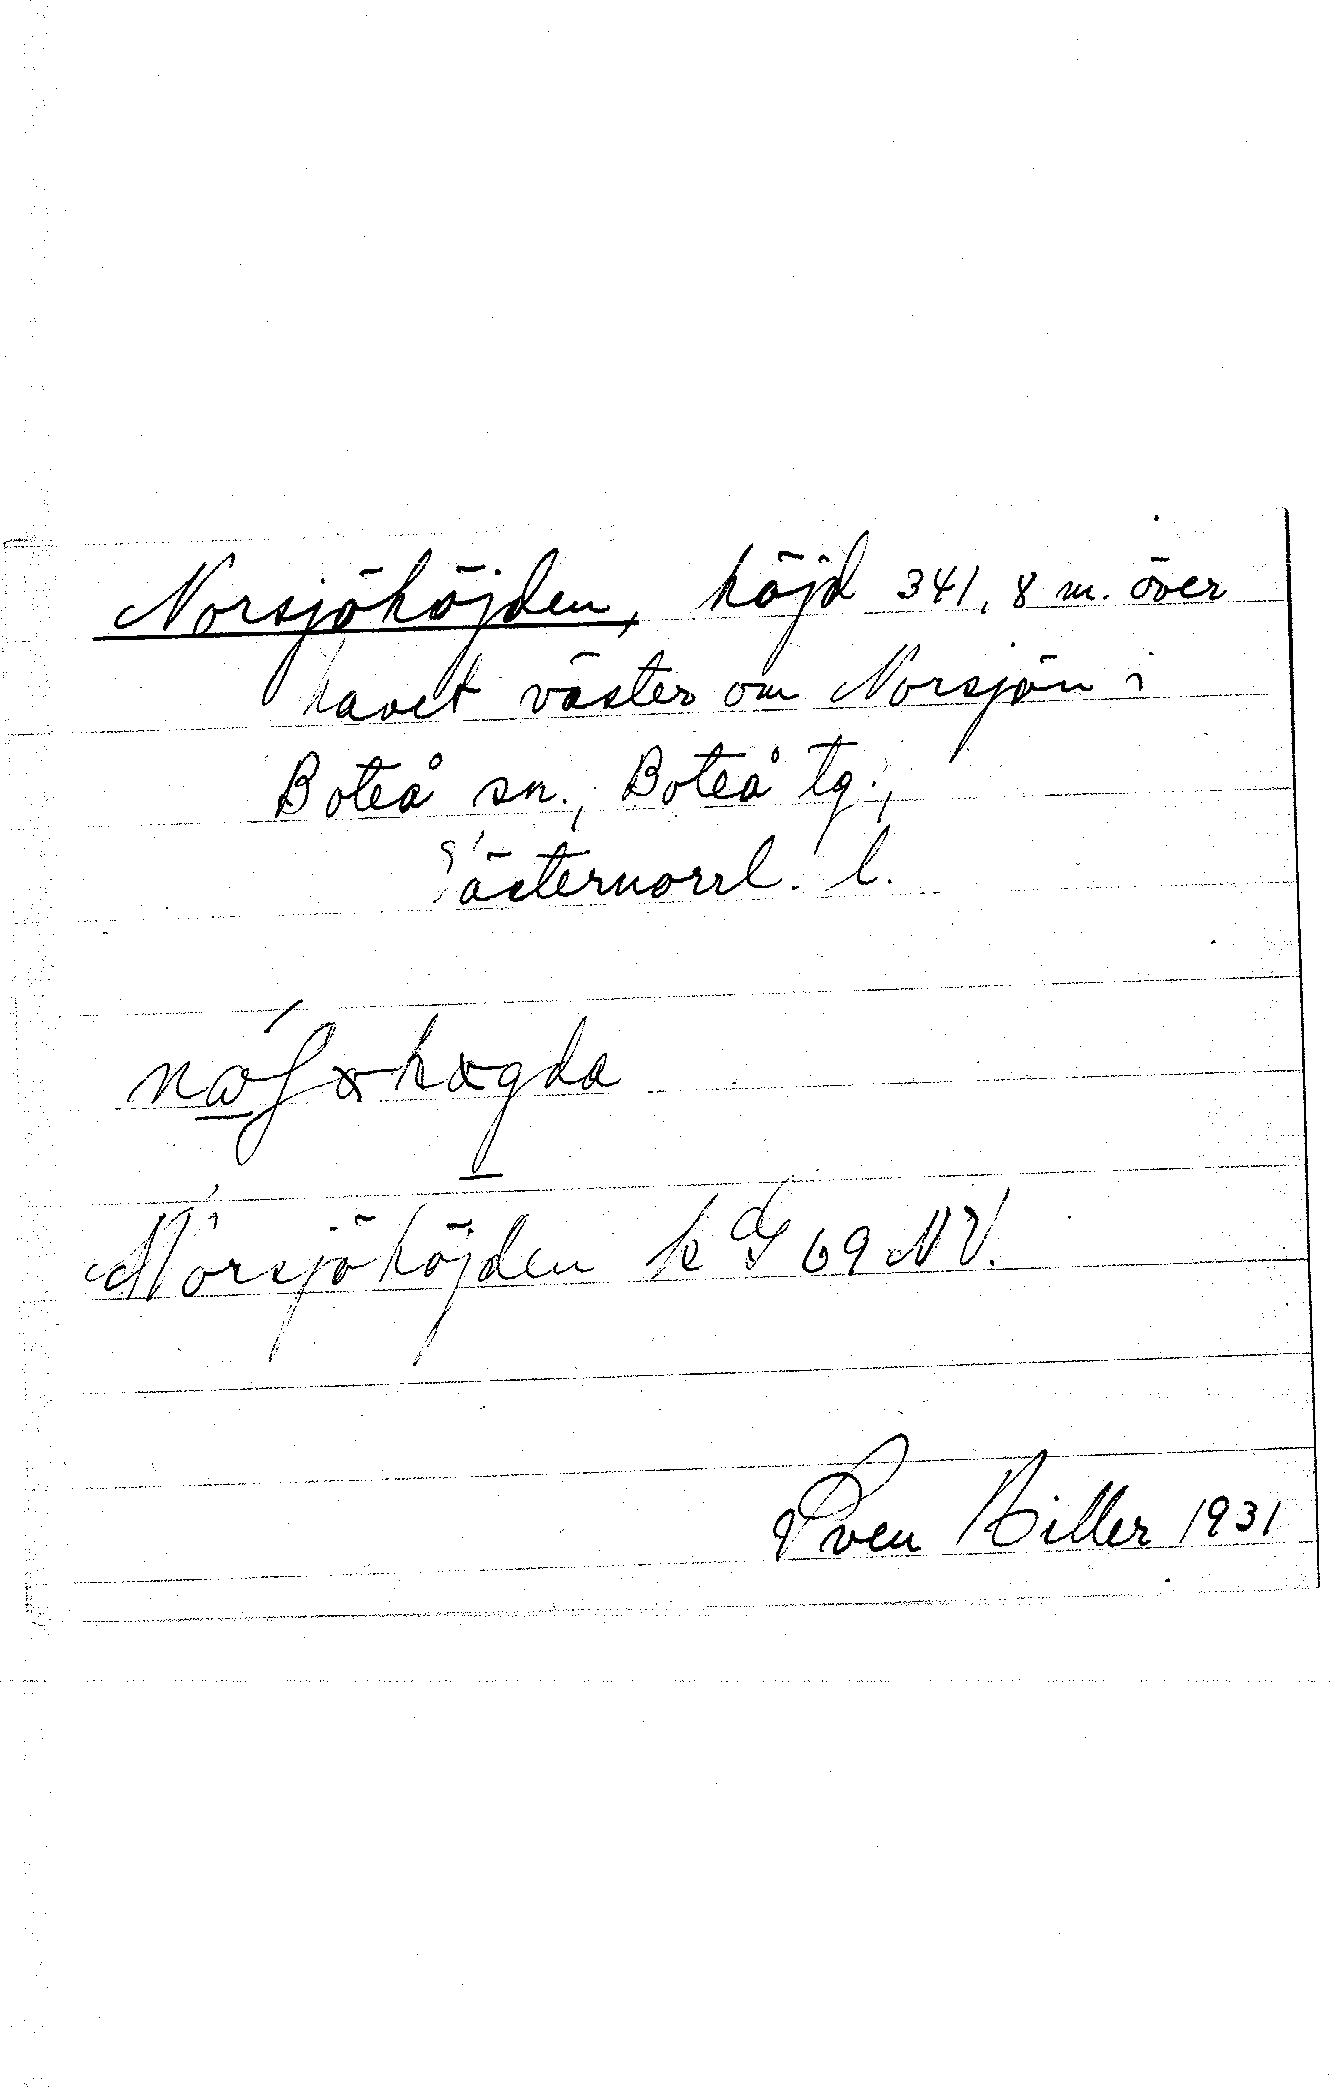 Norsjöhöjden, höjd 341,8 m. över
havet väster om Norsjön i
Boteå sn., Boteå tg.,
Västernorrl. l.
Norsjöhöjden k G 69 NV.
Sven Hiller 1931